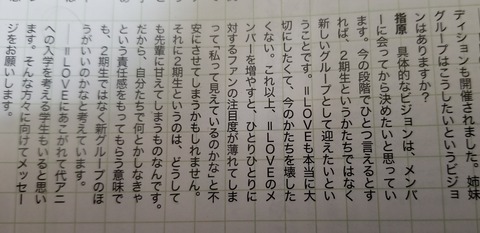 ディションも開催されました。姉妹
グループはこうしたいというビジョ
ンはありますか？
指原　具体的なビジョンは、メンバ
ーに会ってから決めたいと思ってい
ます。今の段階でひとつ言えるとす
れば、２期生というかたちではなく
新しいグループとして迎えたいとい
うことです。＝LOVEも本当に大
切にしたくて、今のかたちを壊した
くない。これ以上、＝LOVEのメ
ンバーを増やすと、ひとりひとりに
対するファンの注目度が薄れてしま
って「私って見えているのかな」と不
安にさせてしまうかもしれません。
それに２期生というのは、どうして
も先輩に甘えてしまうものなんです。
だから、自分たちで何とかしなきゃ
という責任感をもってもらう意味で
も、２期生ではなく新グループのほ
うがいいのかなと考えています。
――＝LOVEにあこがれて代アニ
への入学を考える学生もいると思い
ます。そんな方々に向けてメッセー
ジをお願いします。